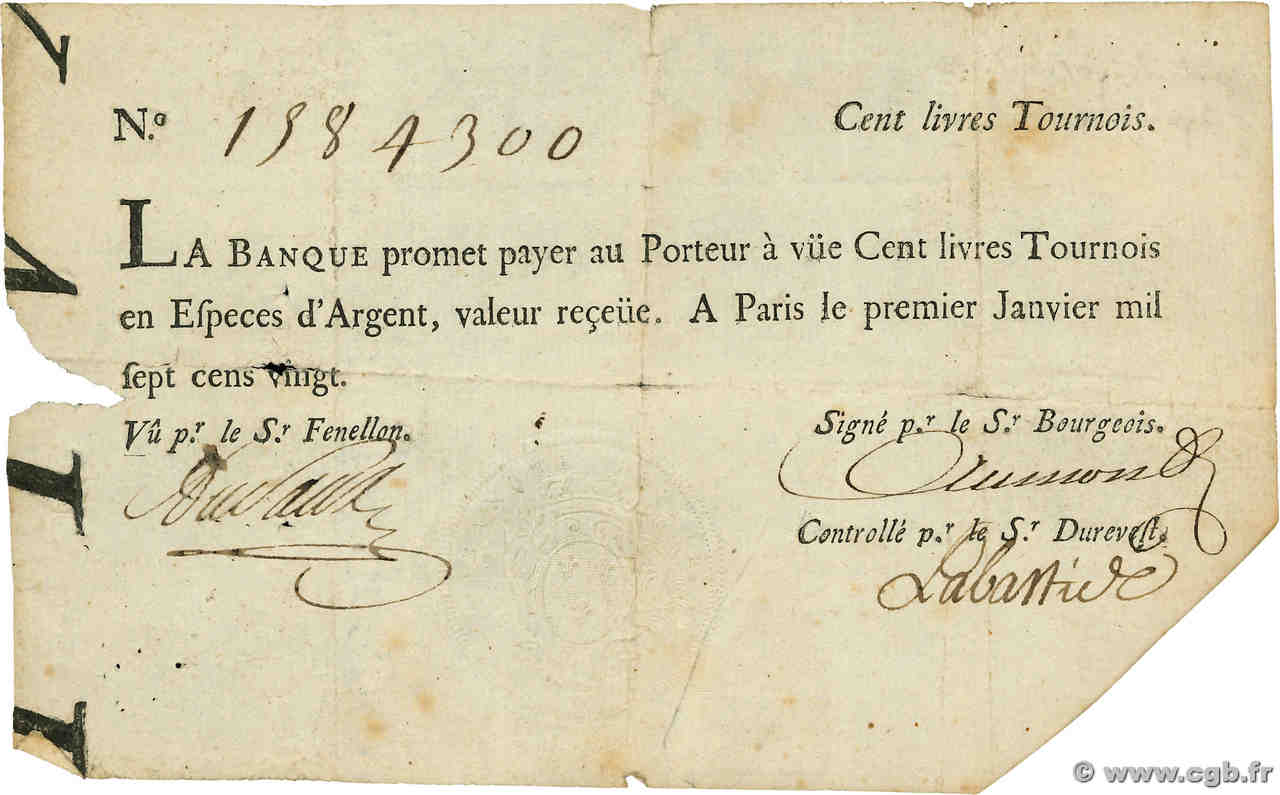 N.º 1384300 Cent livres Tournois.
LA BANQUE promet payer au Porteur à vüe Cent livres Tournois
en Eſpeces d'Argent, valeur reçeüe. A Paris le premier Janvier mil
ſept cens vingt.
Vû p.r le S.r Fenellon. Signé p.r le S.r Bourgeois.
Controllé p.r le S.r Durevest.
Labastide
© www.cgb.fr